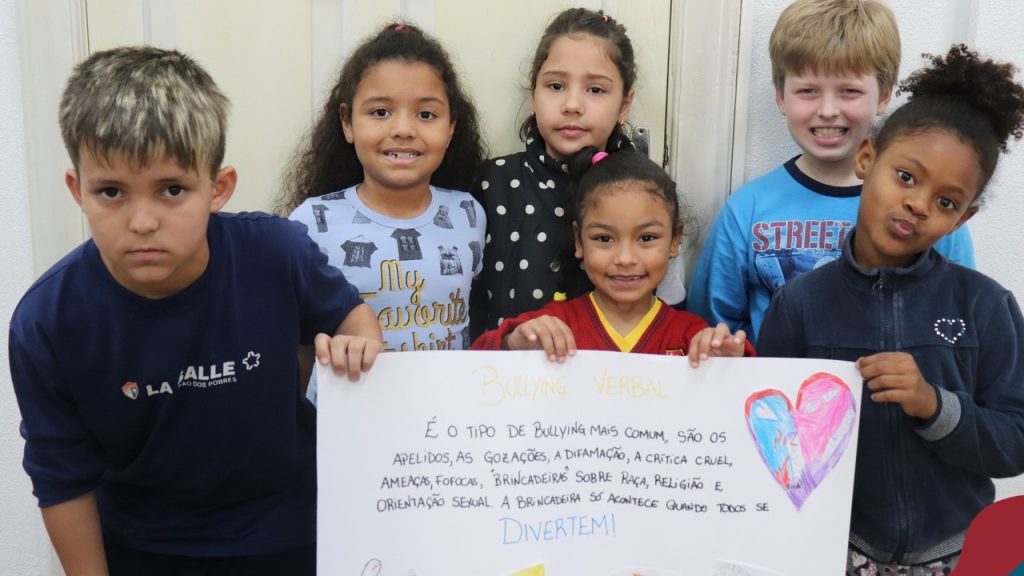 BULLYING VERBAL
É O TIPO DE BULLYING MAIS COMUM, SÃO OS
APELIDOS, AS GOZAÇÕES, A DIFAMAÇÃO, A CRÍTICA CRUEL,
AMEAÇAS, FOFOCAS, "BRINCADEIRAS" SOBRE RAÇA, RELIGIÃO E
ORIENTAÇÃO SEXUAL. A BRINCADEIRA SÓ ACONTECE QUANDO TODOS SE
DIVERTEM!
LA SALLE
PÃO DOS POBRES
My
Favorite
STREET